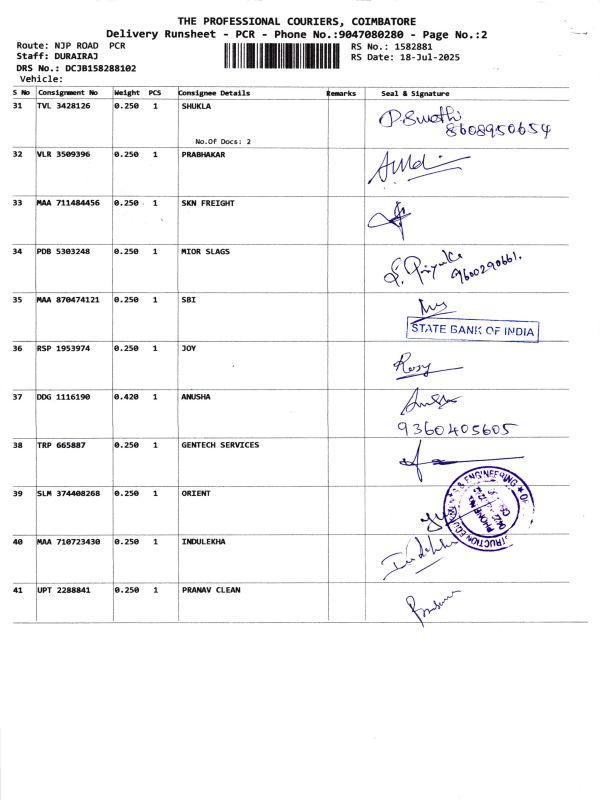 THE PROFESSIONAL COURIERS, COIMBATORE
Delivery Runsheet - PCR - Phone No.:9047080280 - Page No.:2
Route: NJP ROAD PCR
Staff: DURAIRAJ
DRS No.: DCJB158288102
Vehicle:
RS No.: 1582881
RS Date: 18-Jul-2025
S No Consignment No Weight PCS Consignee Details Remarks Seal & Signature
31 TVL 3428126 0.250 1 SHUKLA
No.Of Docs: 2
P.Swathi
8608950654
32 VLR 3509396 0.250 1 PRABHAKAR
33 MAA 711484456 0.250 1 SKN FREIGHT
34 PDB 5303248 0.250 1 MIOR SLAGS
S. Priyanka
9600290661.
35 MAA 870474121 0.250 1 SBI
STATE BANK OF INDIA
36 RSP 1953974 0.250 1 JOY
Rosy
37 DDG 1116190 0.420 1 ANUSHA
9360405605
38 TRP 665887 0.250 1 GENTECH SERVICES
39 SLM 374408268 0.250 1 ORIENT
& ENGINEERING
40 MAA 710723430 0.250 1 INDULEKHA
Indulekha
41 UPT 2288841 0.250 1 PRANAV CLEAN